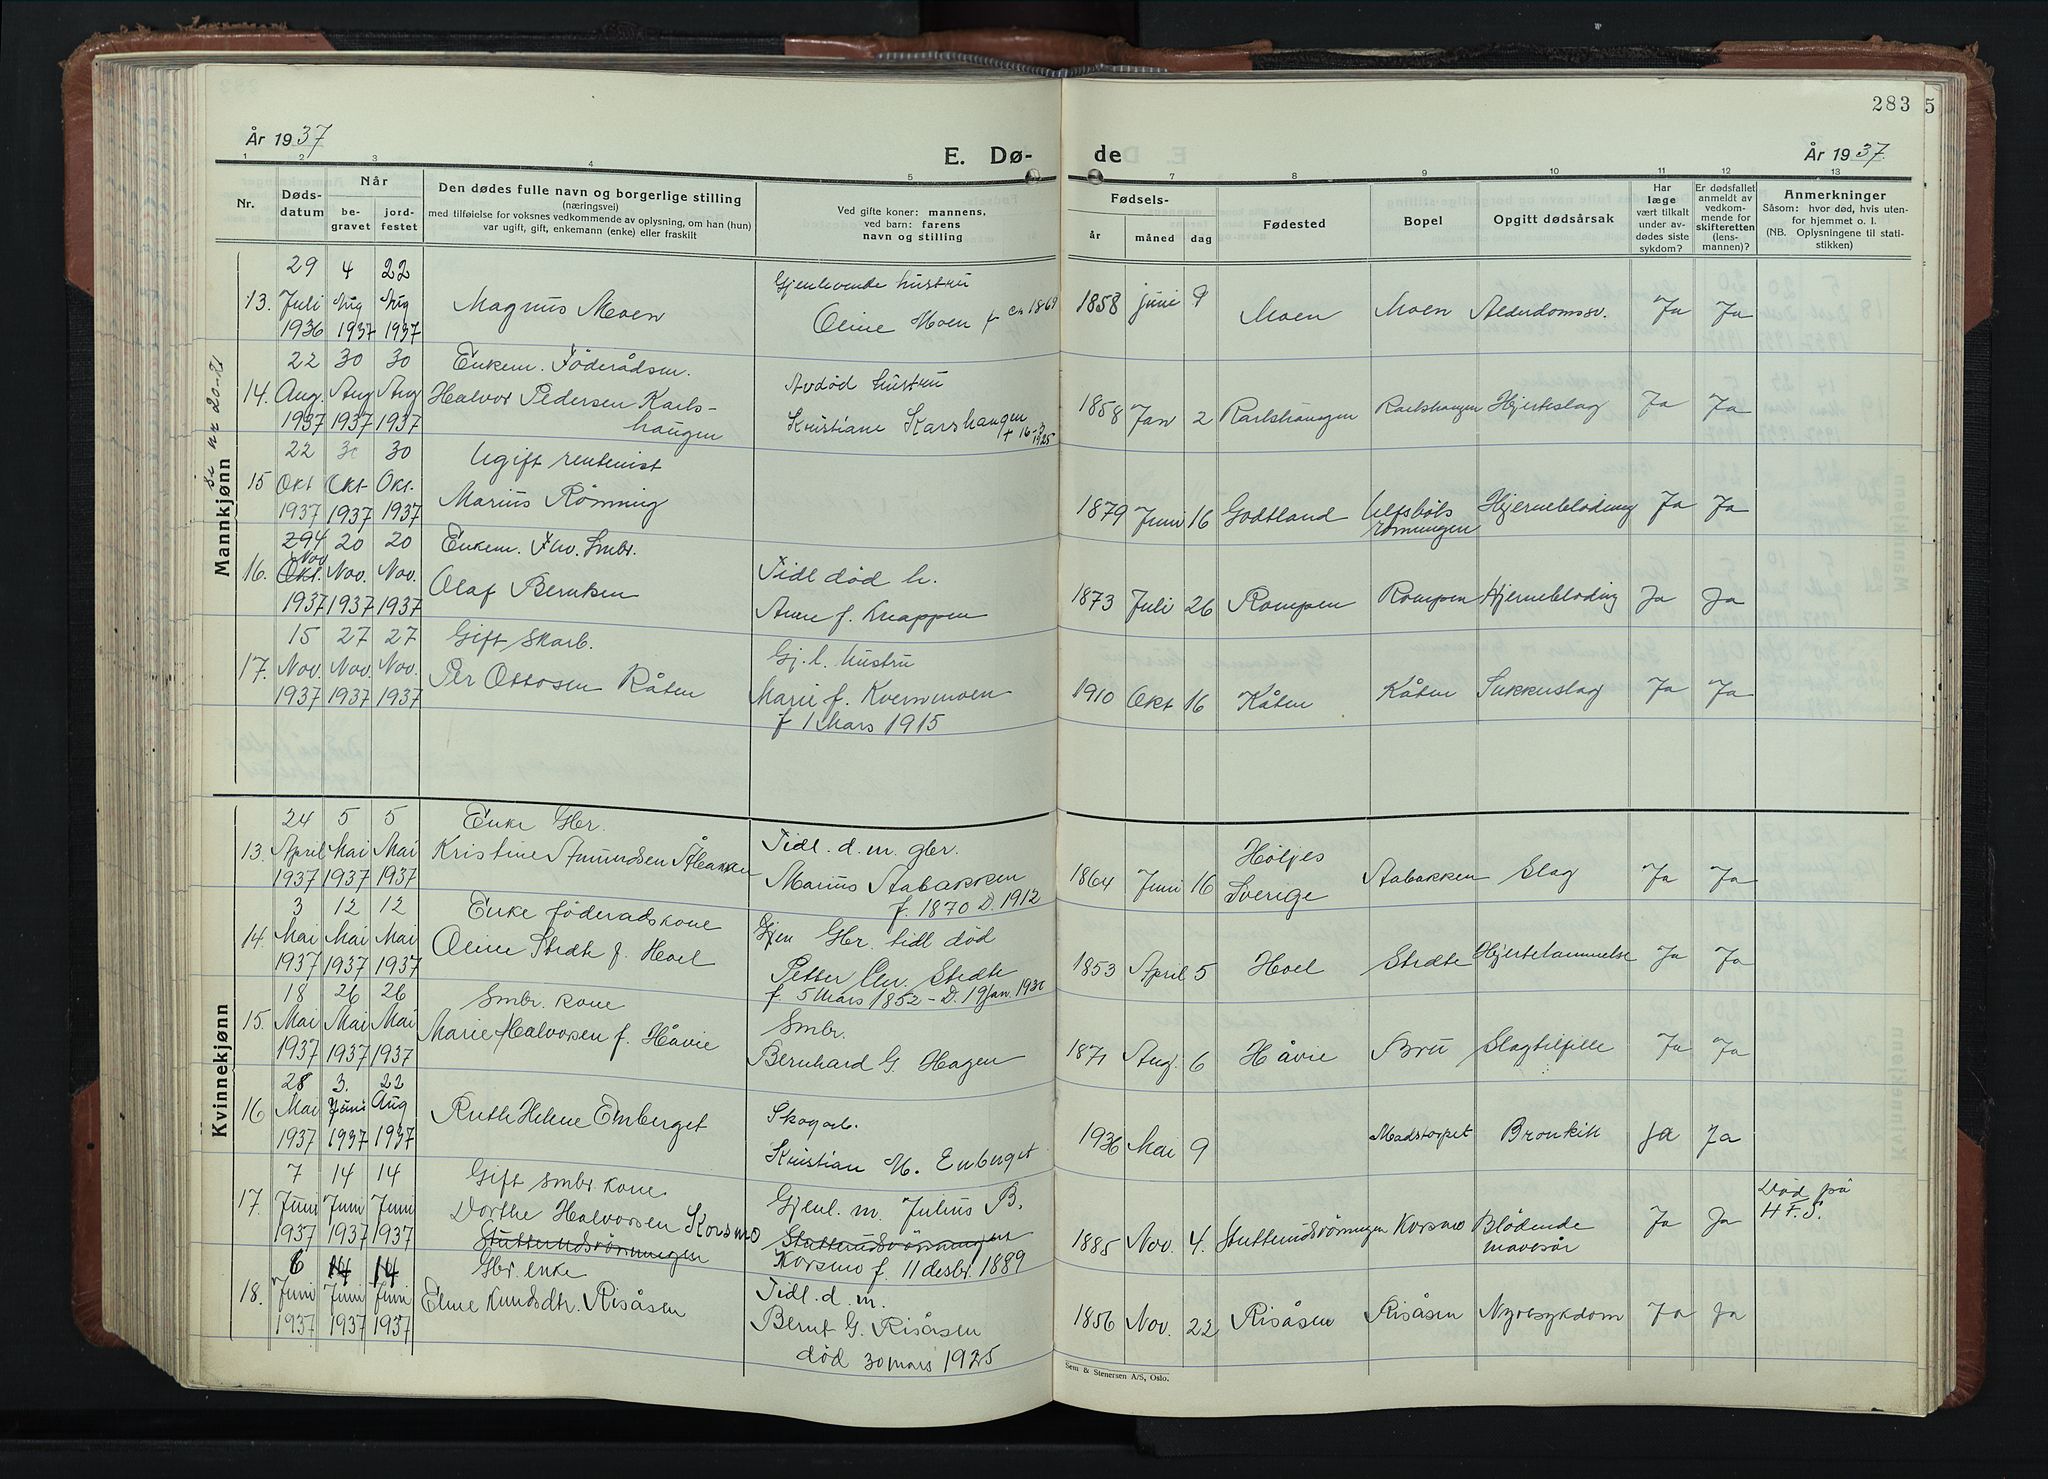 283 5
År 1937
E. Dø-
de
År 1937.
1 2 3 4 5 7 8 9 10 11 12 13
Nr.
Døds-
datum
Når
be-
gravet
jord-
festet
Den dødes fulle navn og borgerlige stilling
(næringsvei)
med tilføielse for voksnes vedkommende av oplysning, om han (hun)
var ugift, gift, enkemann (enke) eller fraskilt
Ved gifte koner: mannens,
ved barn: farens
navn og stilling
Fødsels-
år måned dag
Fødested
Bopel
Opgitt dødsårsak
Har
læge
vært tilkalt
under av-
dødes siste
sykdom?
Er dødsfallet
anmeldt av
vedkom-
mende for
skifteretten
(lens-
mannen)?
Anmerkninger
Såsom: hvor død, hvis uten-
for hjemmet o. l.
(NB. Oplysningene til stati-
stikken)
Mannkjønn
se nr 20-21
29 4 22
Gjenlevende hustru
13. Juli Aug Aug Magnus Moen
1936 1937 1937
Oline Moen f ca 1869
1858 juni 9 Moen Moen Alderdomssv. Ja Ja
22 30 30 Enkem. Föderådsm.
Avdød hustru
14. Aug. Aug Aug Halvor Pedersen Karls-
1937 1937 1937 haugen
Kristiane Karshaugen
1925
1858 Jan 2 Karlshaugen Karlshaugen Hjerteslag Ja Ja
22 30 30 Ugift rentenist
15 Okt Okt Okt. Marius Rønning
1937 1937 1937
1879 Juni 16 Godtland Ulfsböls Hjerneblödning Ja Ja
rönningen
294 20 20 Enkem. Fhv. Smbr.
Nov
16. Okt. Nov. Nov. Olaf Berntsen
1937 1937 1937
Tidl död h.
Anne f. Knappen
1873 Juli 26 Rompen Rompen Hjerneblödning Ja Ja
15 27 27 Gift skarb.
Gj. l. hustru
17. Nov. Nov. Nov. Per Ottosen Kåten
1937 1937 1937
Marie f. Kvernmoen
f 1 Mars 1915
1910 Okt 16 Kåten Kåten Sukkerslag Ja Ja
Kvinnekjønn
24 5 5 Enke Gbr.
Tidl. d. m. gbr.
13. April Mai Mai Kristine Amundsen Åbakken
1937 1937 1937
Marius Aabakken
f. 1870 D. 1912
1864 Juni 16 Höljes
Sverige
Aabakken Slag Ja Ja
3 12 12 Enke föderadskone
Gjen Gbr. tidl död
14. Mai Mai Mai Oline Stedte f. Hoel
1937 1937 1937
Petter Chr. Stedte
f. 5 Mars 1852 - D. 19 Jan.
1853 April 5 Hoel Stedte Hjertelammelse Ja Ja
18 26 26 Smbr. kone
Smbr.
15. Mai Mai Mai Marie Halvorsen f. Håvie
1937 1937 1937
Bernhard G. Hagen
1871 Aug. 6 Håvie Bru Slagtilfelle Ja Ja
28 3. 22
16 Mai Juni Aug Ruth Helene Emberget
1937 1937 1937
Skogarb.
Kristian M. Enberget
1936 Mai 9 Madstorpet Bronkitt Ja Ja
7 14 14 Gift smbr kone
Gjenl. m. Julius B.
17. Juni Juni Juni Dorthe Halvorsen Korsmo
1937 1937 1937 Stutterudsrönningen
Stutterudsrönningen
Korsmo f. 11 desbr. 1889
1885 Nov. 4. Stutterudsrönningen Korsmo Blödende
mavesår
Ja Ja
Död på
H F. S.
6 14 14 Gbr. enke
Tidl. d. m.
18. Juni Juni Juni Eline Knudsdtr. Risåsen
1937 1937 1937
Bernt G. Risåsen
död 30 mars 1925
1856 Nov. 22 Risåsen Risåsen Nyresykdom Ja Ja
Sem & Stenersen A/S, Oslo.